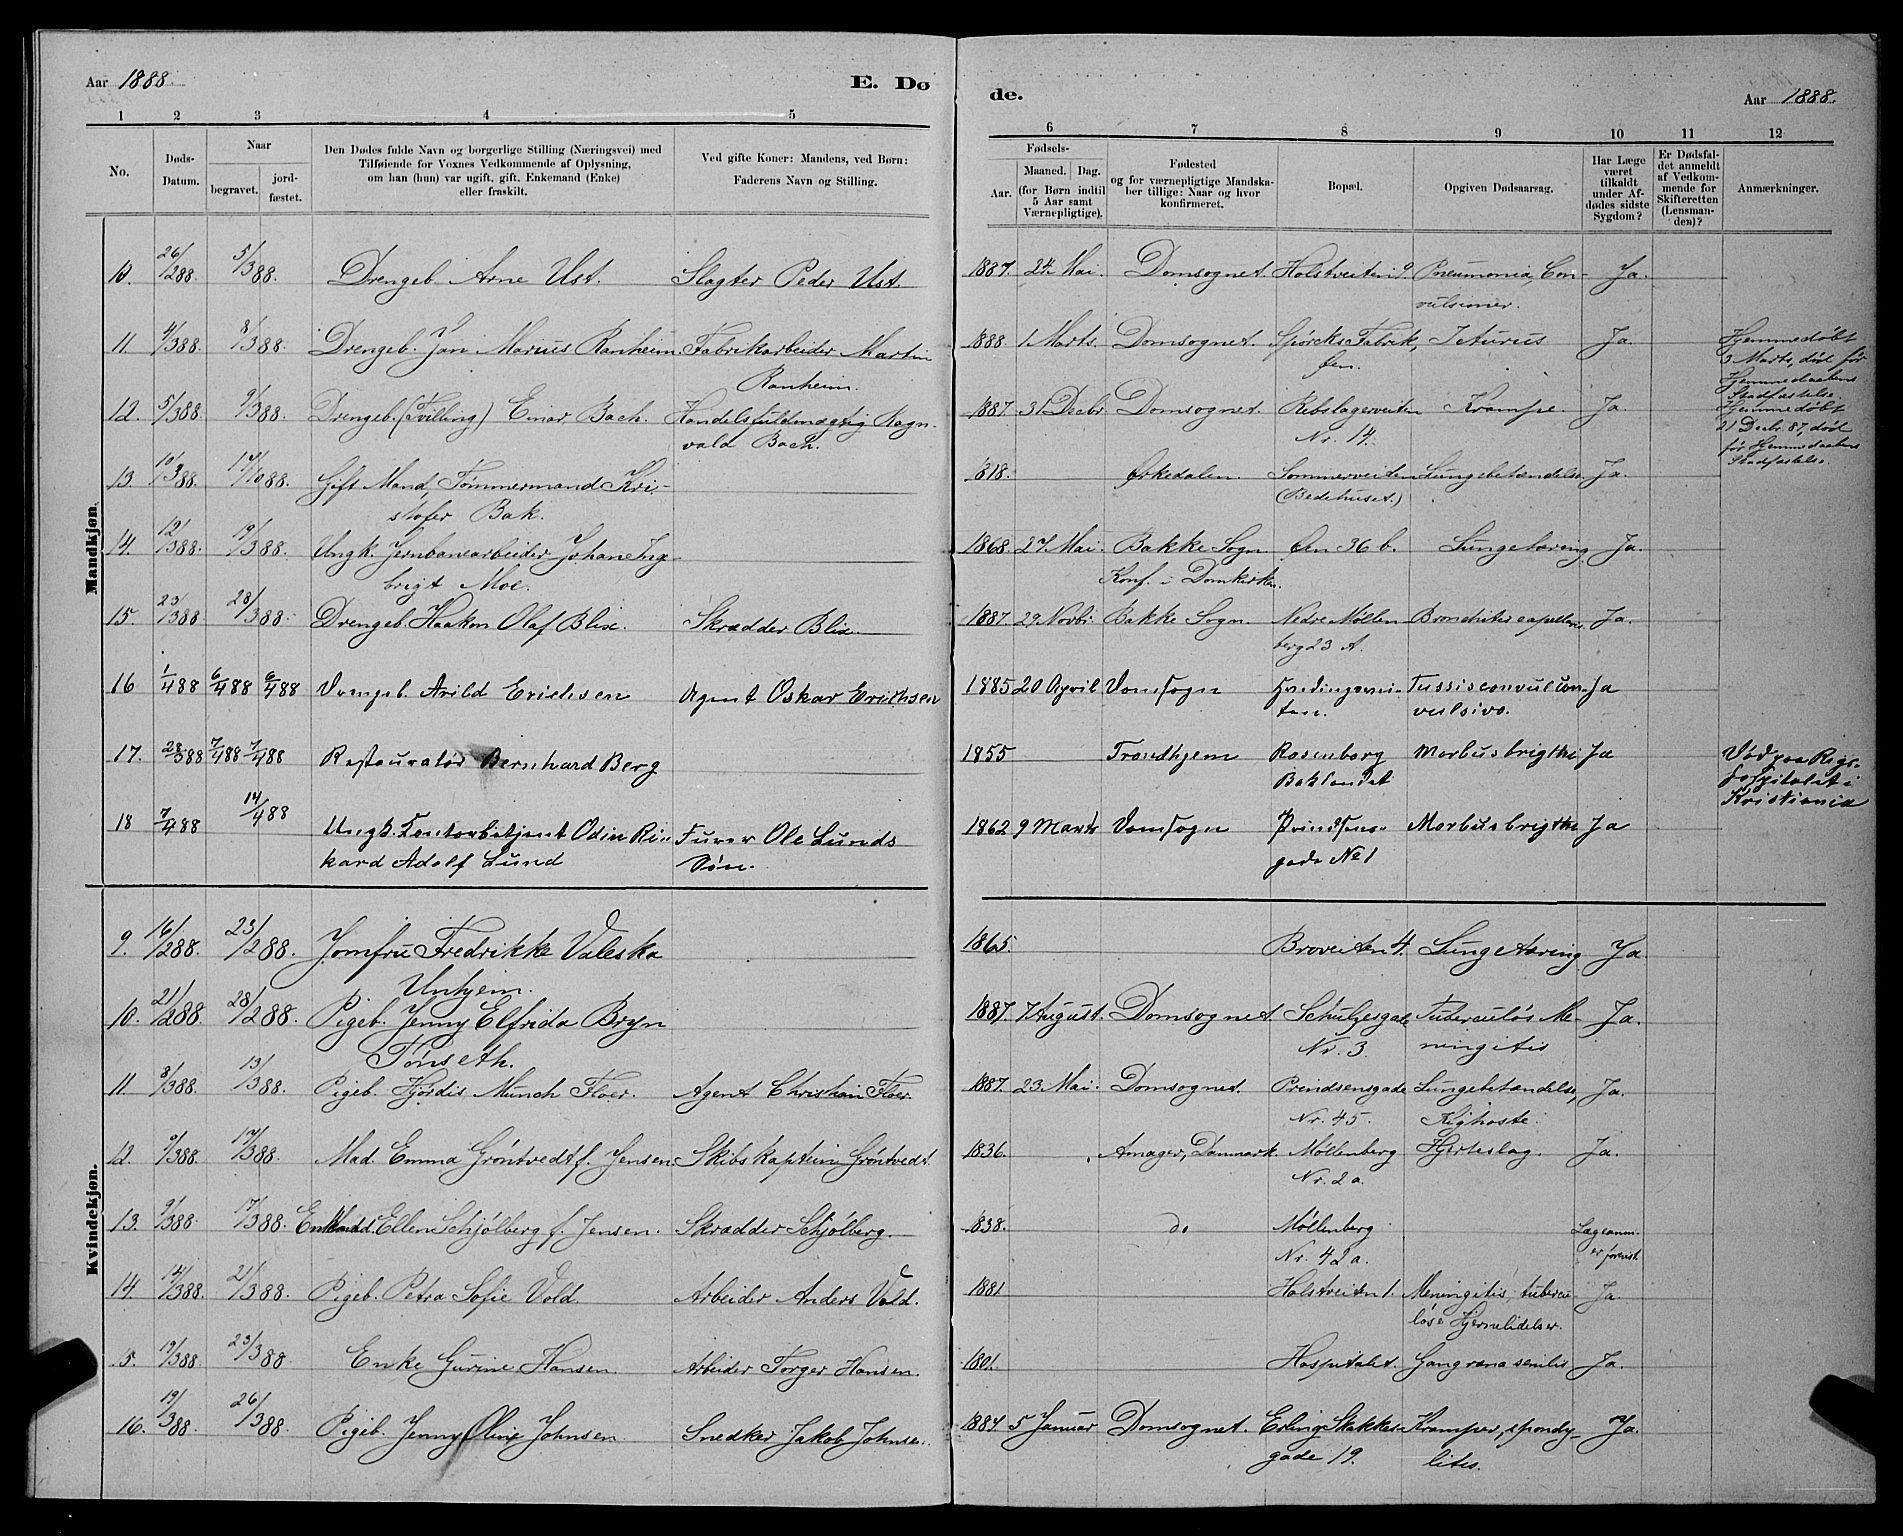 Aar 1888. E. Dø
de. Aar 1888.
1 2 3 4 5
6 7 8 9 10 11 12
No.
Døds-
Datum.
Naar
begravet.
jord-
fæstet.
Den Dødes fulde Navn og borgerlige Stilling (Næringsvei) med
Tilføiende for Voxnes Vedkommende af Oplysning,
om han (hun) var ugift, gift, Enkemand (Enke)
eller fraskilt.
Ved gifte Koner: Mandens, ved Børn:
Faderens Navn og Stilling.
Fødsels-
Aar.
Maaned. Dag.
(for Børn indtil
5 Aar samt
Værnepligtige).
Fødested
og for værnepligtige Mandska-
ber tillige: Naar og hvor
konfirmeret.
Bopæl.
Opgiven Dødsaarsag.
Har Læge
været
tilkaldt
under Af-
dødes sidste
Sygdom?
Er Dødsfal-
det anmeldt
af Vedkom-
mende for
Skifteretten
(Lensman-
den)?
Anmærkninger.
Mandkjøn.
10. 26/288. 5/388. Drengeb. Arne Ust. Slagter Peder Ust. 1887. 24 Mai. Domsognet. Holstveiten 9. Pneumonia, Con- Ja.
vulsioner.
11. 4/388. 8/388. Drengeb. Jan Marius Ranheim Fabrikarbeider Martin 1888. 1 Marts. Domsognet. Spörcks Fabrik, Icturus Ja
Ranheim. Øen.
Hjemmedøbt
3 Marts, død før
Hjemmedaabens
Stadfæstelse.
12. 5/388. 9/388. Drengeb. (Tvilling) Einar Bach. Handelsfuldmægtig Ragn- 1887. 31 Decbr. Domsognet. Rebslagerveiten Krampe. Ja.
vald Bach. Nr. 14.
Hjemmedøbt
21 Decbr. 87, død
før Hjemmedaabens
Stadfæstelse.
13. 10/388. 17/1088. Gift Mand, Tømmermand Kri- 818. Ørkedalen. Sommerveiten Lungebetændelse Ja.
stofer Bak. (Bedehuset.)
14. 12/388. 19/388. Ungk. Jernbanearbeider Johan Ing 1868. 27 Mai. Bakke Sogn. Øen 36 b. Lungetæring. Ja.
brigt Moe. Konf. i Domkirken.
15. 23/388 28/388. Drengeb. Haakon Olaf Blix. Skrædder Blix. 1887. 29 Novbr. Bakke Sogn. Nedre Møllen Bronchiter capellaris. Ja.
berg 23 A.
16 1/488 6/488 6/488 Drengeb. Arild Erichsen Agent Oskar Erichsen 1885 20 April Domsogn Tussis convul con- Ja
ten. vulsiva.
17. 28/388 7/488 7/488 Restauratør Bernhard Berg 1855 Trondhjem Rosenborg Morbus brigthi Ja
Baklandet
Død paa Rigs-
hospitalet i
Kristiania
18 7/488 14/488 Ungk. Contorbetjent Odin Ri- Furer Ole Lunds 1862 9 Marts Domsogn Prindsens- Morbus brigthi Ja
kard Adolf Lund Søn. gade No 1
Kvindekjøn.
9. 16/288. 23/288. Jomfru Fredrikke Valeska 1865. Broveiten 4. Lungetæring. Ja
Unhjem.
10. 21/288. 28/288. Pigeb. Jenny Elfrida Bryn 1887. 7 August. Domsognet. Schultzesgade Tuberculøs Me- Ja.
Tønseth. Nr. 3. ningitis
11. 8/388. 13/388. Pigeb. Hjördis Münch Floer. Agent Christian Floer. 1887. 23 Mai. Domsognet. Prindsensgade Lungebetændelse, Ja.
Nr. 45. Kighoste.
12. 9/388. 17/388. Mad. Emma Gröntvedt f. Jensen Skibskaptein Gröntvedt. 1836. Amager, Danmark Møllenberg Hjerteslag. Ja.
Nr. 2 a.
13. 9/388. 17/388. Enke Ellen Schjölberg f. Jensen. Skrædder Schjölberg. 1838. do Møllenberg Lægeanm.
Nr. 42 a. er forevist.
14. 14/388. 21/388. Pigeb. Petra Sofie Vold. Arbeider Anders Vold. 1881 Holstveiten 1. Meningitis, tubercu Ja.
løse Hjernelidelser.
15. 19/388. 23/388 Enke Gurine Hansen. Arbeider Torger Hansen. 1801. Hospitalet. Gangræna senilis Ja.
16. 19/388. 26/388. Pigeb. Jenny Oline Johnsen Snedker Jakob Johnsen. 1884. 5 Januar Domsognet. Erling Skakkes- Kramper, spondy- Ja.
gade 19. litis.